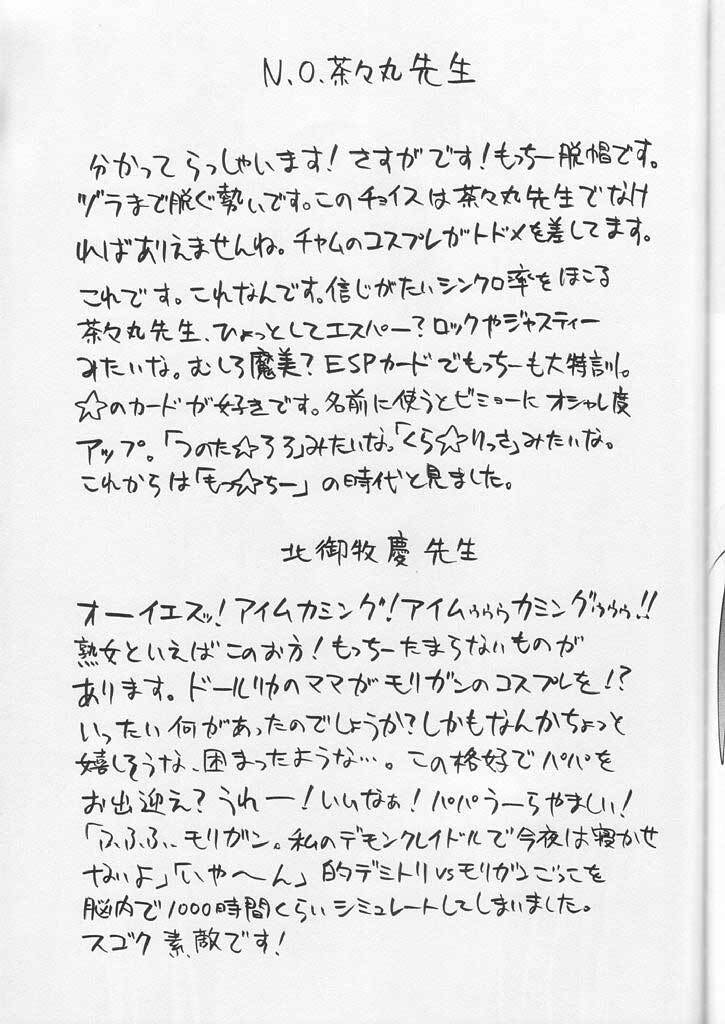 N.O.茶々丸先生
分かってらっしゃいます!さすがです!もっちー脱帽です。
ヅラまで脱ぐ勢いです。このチョイスは茶々丸先生でなけ
ればありえませんね。チャムのコスプレがトドメを差してます。
これです。これなんです。信じがたいシンクロ率をほこる
茶々丸先生、ひょっとしてエスパー?ロックやジャスティー
みたいな。むしろ魔美?ESPカードでもっちーも大特訓。
☆のカードが好きです。名前に使うとビミョーにオシャレ度
アップ。「つのた☆ろう」みたいな。「くら☆りっさ」みたいな。
これからは「もっ☆ちー」の時代と見ました。
北御牧慶先生
オーイエスッ!アイムカミング!アイムゥゥゥカミングゥゥゥ!!
熟女といえばこのお方!もっちーたまらないものが
あります。ドールリカのママがモリガンのコスプレを!?
いったい何があったのでしょうか?しかもなんかちょっと
嬉しそうな、困まったような…。この格好でパパを
お出迎え?うれー!いいなぁ!パパうーらやましい!
「ふふふ…モリガン。私のデモンクレイドルで今夜は寝かせ
ないよ」「いや~ん」的デミトリvsモリガンごっこを
脳内で1000時間くらいシミュレートしてしまいました。
スゴク素敵です!